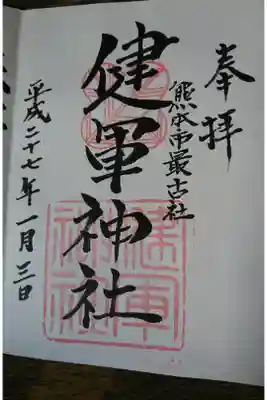 奉拝
熊本市最古社
健軍神社
平成二十七年一月三日